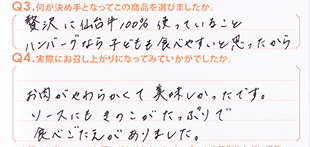 Q3.何が決め手となってこの商品を選びましたか。
贅沢に仙台牛100%使っていること
ハンバーグなら子どもも食べやすいと思ったから
Q4.実際にお召し上がりになってみていかがでしたか。
お肉がやわらかくて美味しかったです。
ソースにもきのこがたっぷりで
食べごたえがありました。